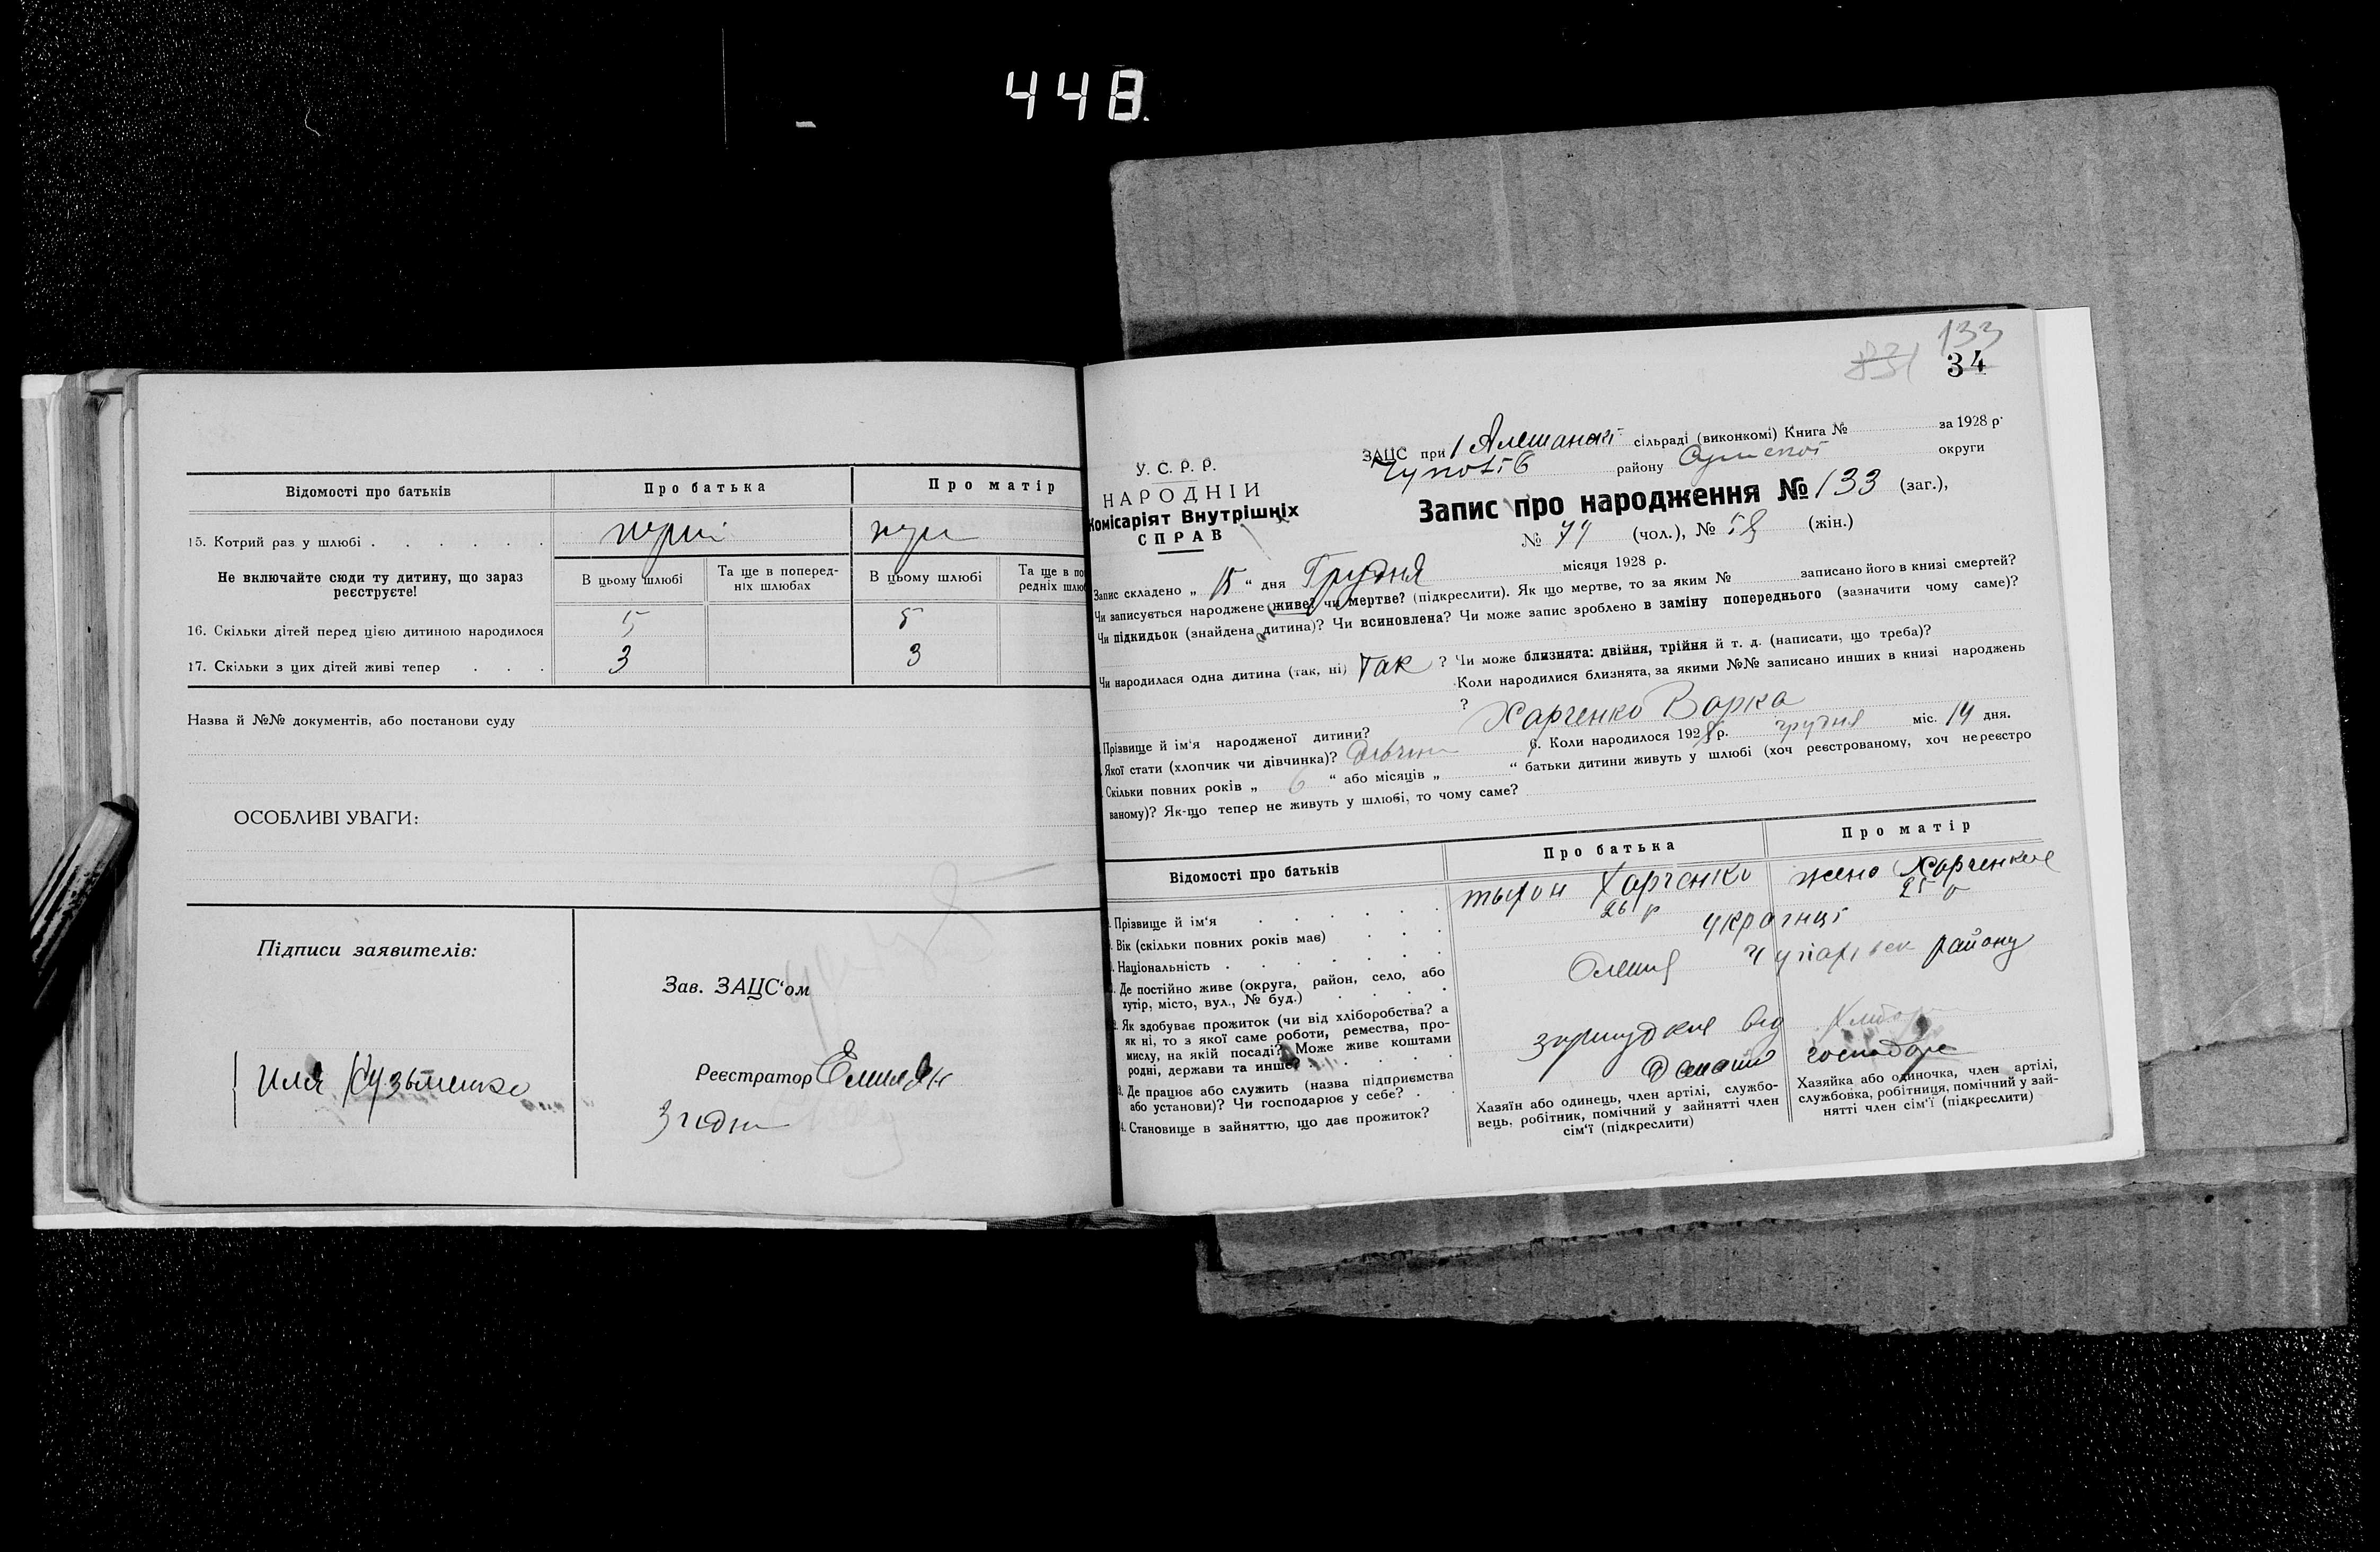 448.
Відомості про батьків
Про батька
Про матір
15. Котрий раз у шлюбі
перш
Не включайте сюди ту дитину, що зараз
реєструєте!
В цьому шлюбі
Та ще в поперед-
ніх шлюбах
В цьому шлюбі
Та ще в по
редніх шлю
16. Скільки дітей перед цією дитиною народилося
5
5
17. Скільки з цих дітей живі тепер
3
3
Назва й №№ документів, або постанови суду
ОСОБЛИВІ УВАГИ:
Підписи заявителів:
Зав. ЗАЦС‘ом
Иля Кузьменко
Реєстратор
133
831 34
У. С. Р. Р.
НАРОДНІЙ
Комісаріят Внутрішніх
СПРАВ
ЗАЦС при 1 сільраді (виконкомі) Книга № за 1928 р.
району Сумської округи
Запис про народження № 133 (заг.),
№ (чол.), № (жін.)
Запис складено „ 15 “ дня Грудня місяця 1928 р.
Чи записується народжене живе? чи мертве? (підкреслити). Як що мертве, то за яким № записано його в книзі смертей?
Чи підкидьок (знайдена дитина)? Чи всиновлена? Чи може запис зроблено в заміну попереднього (зазначити чому саме)?
Чи народилася одна дитина (так, ні) Так ? Чи може близнята: двійня, трійня й т. д. (написати, що треба)?
Коли народилися близнята, за якими №№ записано инших в книзі народжень
?
Прізвище й ім‘я народженої дитини? Харченко Варка
Якої стати (хлопчик чи дівчинка)? 6. Коли народилося 1928 р. грудня міс. 14 дня.
Скільки повних років „ 6 “ або місяців „ “ батьки дитини живуть у шлюбі (хоч реєстрованому, хоч нереєстро
ваному)? Як-що тепер не живуть у шлюбі, то чому саме?
Відомості про батьків
Про батька
Про матір
Прізвище й ім‘я
Харченко
жена
Вік (скільки повних років має)
26 р
25 р
Національність
українці
Де постійно живе (округа, район, село, або
хутір, місто, вул., № буд.)
району
Як здобуває прожиток (чи від хліборобства? а
як ні, то з якої саме роботи, ремества, про-
мислу, на якій посаді? Може живе коштами
родні, держави та инше?
від
Де працює або служить (назва підприємства
або установи)? Чи господарює у себе?
господарс
Становище в зайняттю, що дає прожиток?
Хазяїн або одинець, член артілі, службо-
вець, робітник, помічний у зайнятті член
сім‘ї (підкреслити)
Хазяйка або одиночка, член артілі,
службовка, робітниця, помічний у зай-
нятті член сім‘ї (підкреслити)